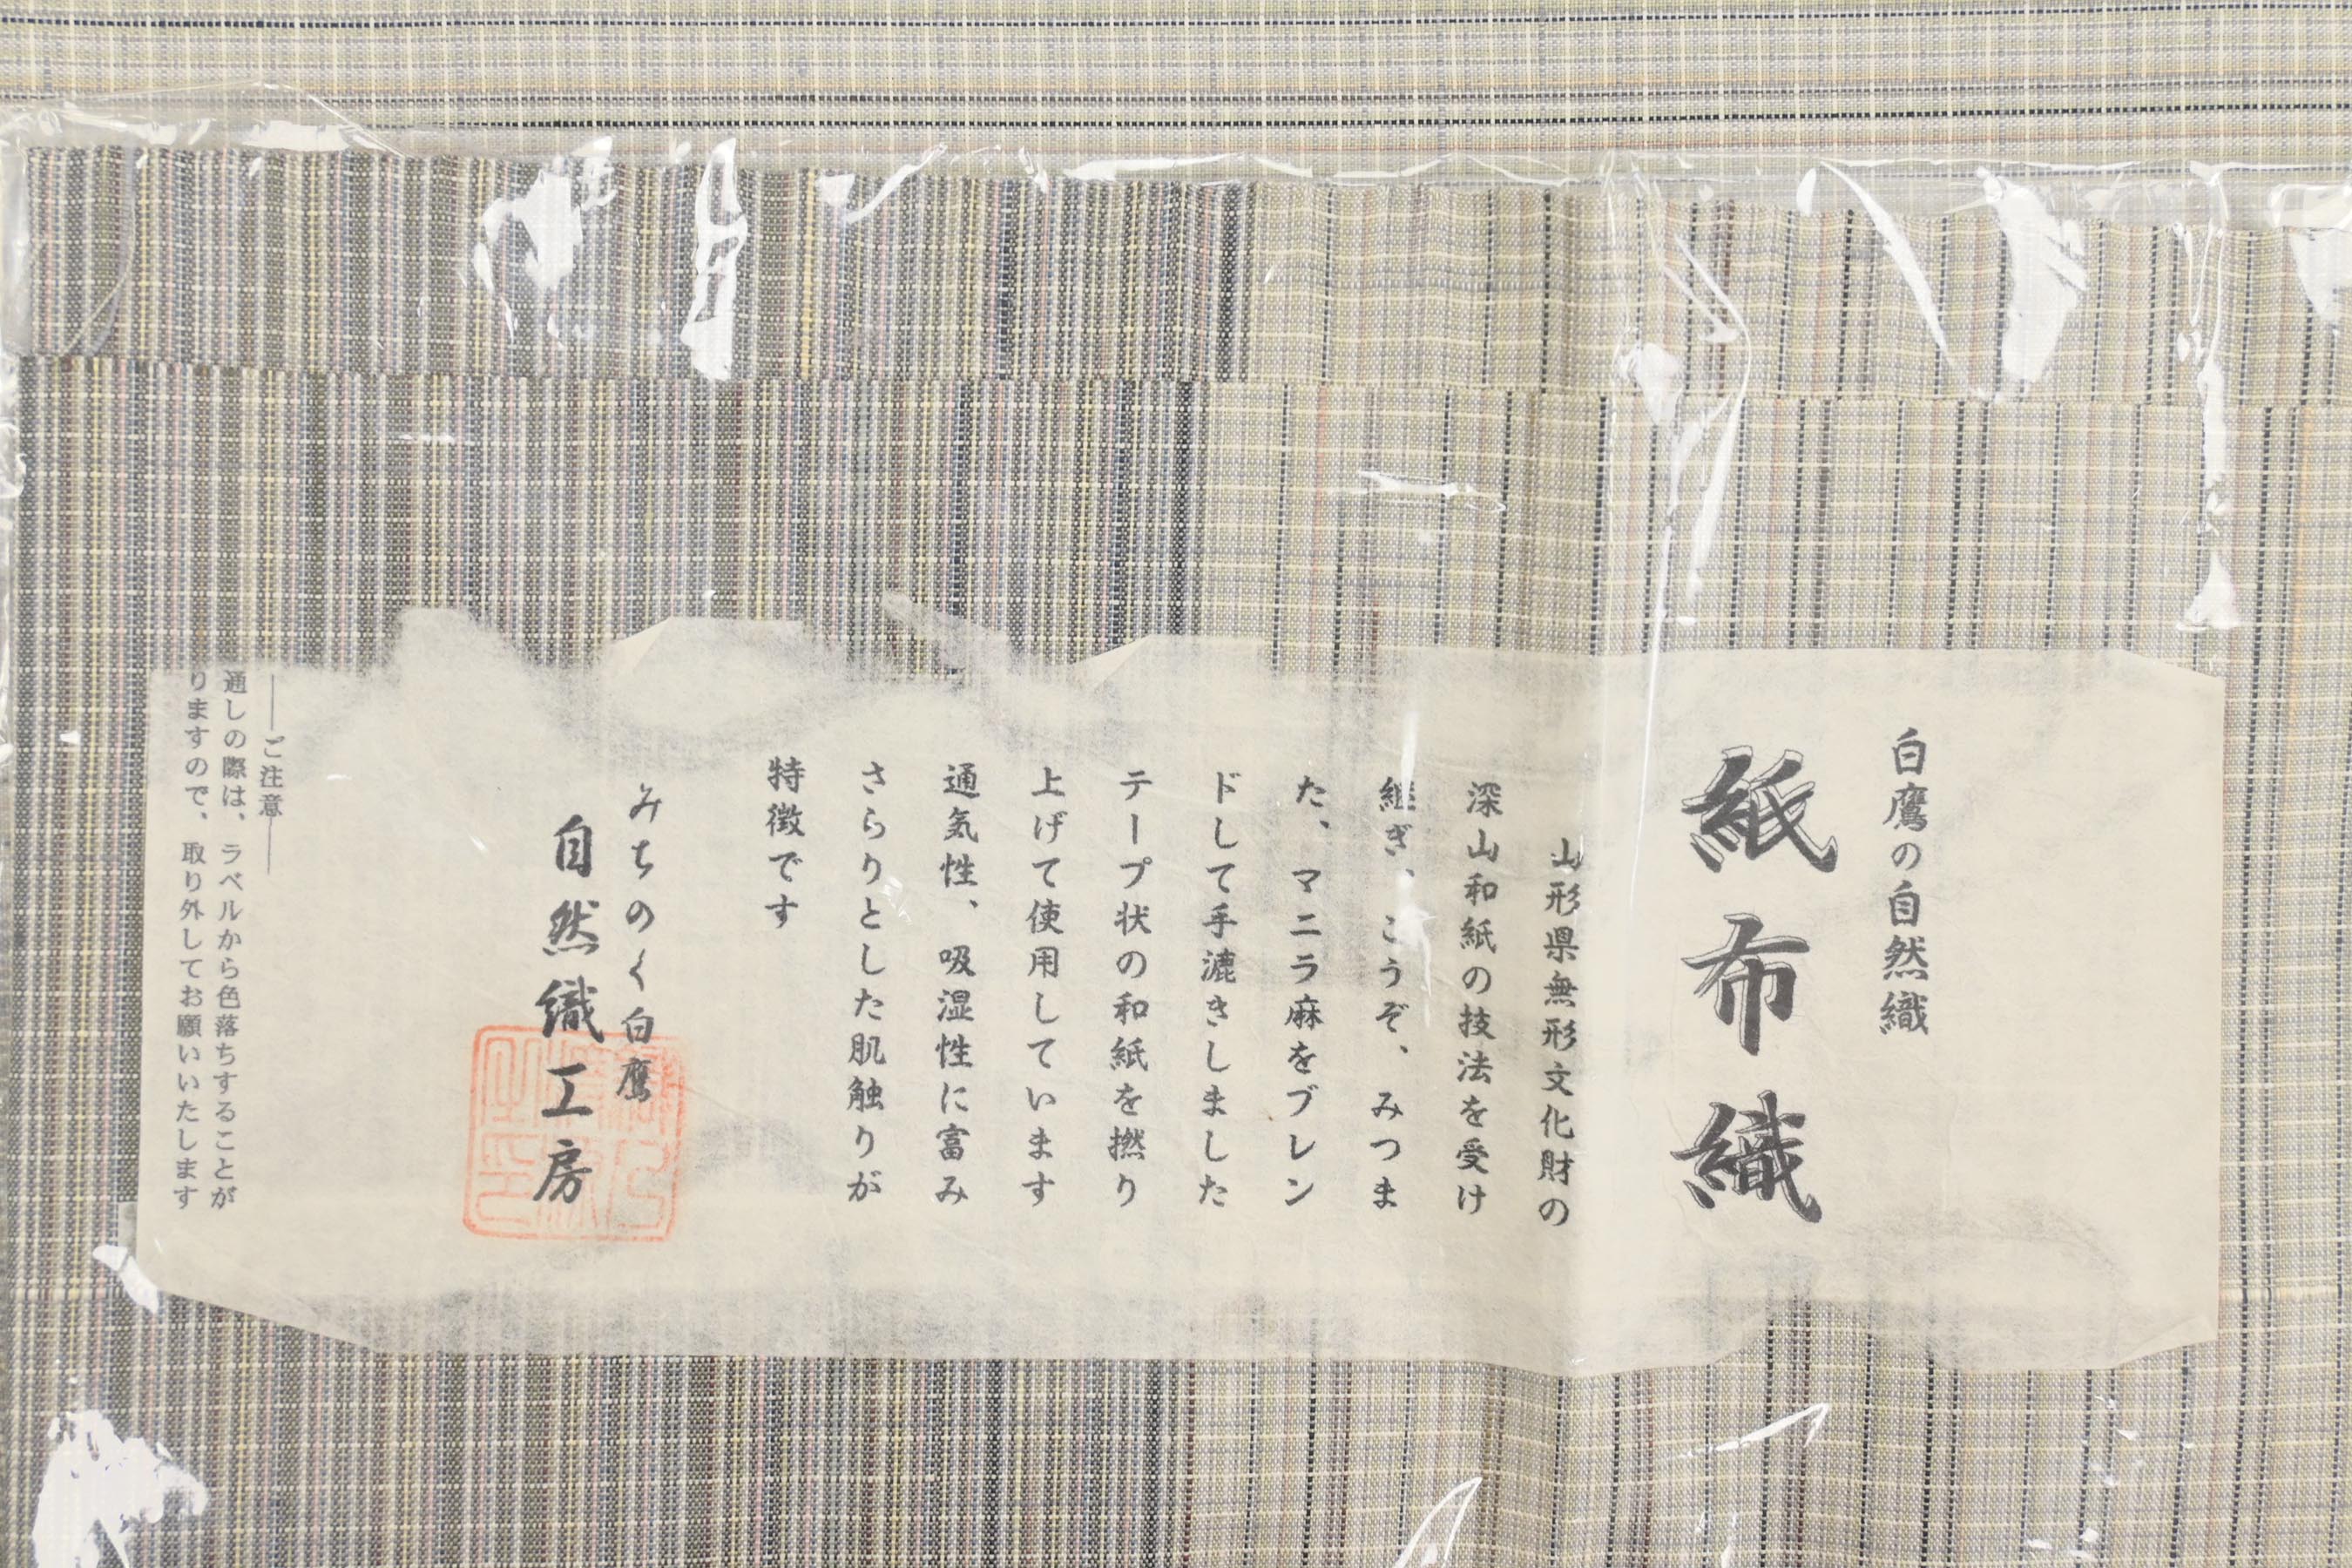 白鷹の自然織
紙布織
山形県無形文化財の
深山和紙の技法を受け
継ぎ、こうぞ、みつま
た、マニラ麻をブレン
ドして手漉きしました
テープ状の和紙を撚り
上げて使用しています
通気性、吸湿性に富み
さらりとした肌触りが
特徴です
みちのく白鷹
自然織工房
ご注意
通しの際は、ラベルから色落ちすることが
りますので、取り外してお願いいたします